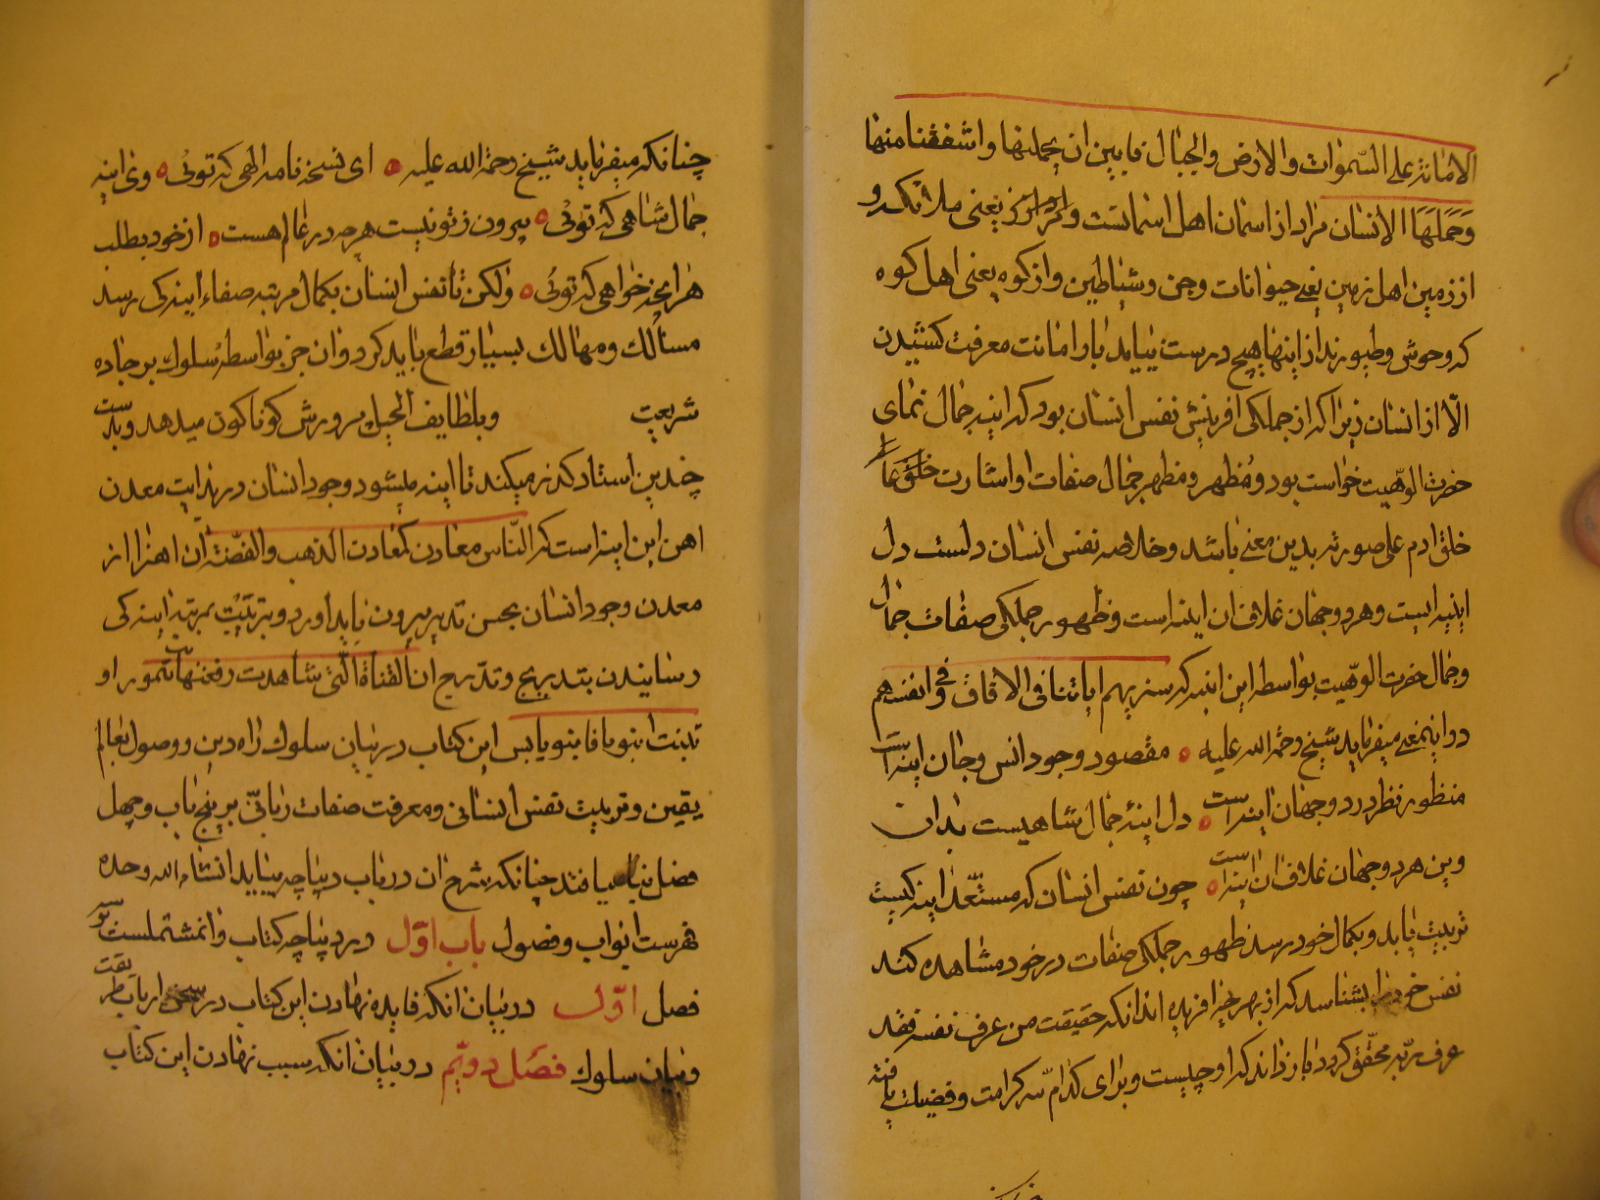 الامانة على السموات والارض والجبال فابین ان یحملنها واشفقنا منها
وَحَمَلَهَا الانسان مراد از اسمان اهل اسمانست و یعنی ملائکه و
از زمین اهل زمین یعنی حیوانات وجن وشیاطین واز کوه یعنی اهل کوه
که وحوش وطیورند از اینها هیچ درست نیاید بار امانت معرفت کشیدن
الّا از انسان زیرا که از جملکی افرینش نفس انسان بود که اینه جمال نمای
حضرت الوهیّت خواست بود ومُظهر ومظهر جمال صفات او اشارت خلق
خلق ادم علی صورته بدین معنی باشد وخلاصه نفس انسان دلست دل
اینه است وهر دو جهان غلاف ان اینه است وظهور جملکی صفات جمال
وجمال حضرت الوهیّت بواسطه این اینه که سنریهم ایاتنا فی الافاق وفی انفسهم
و اینمعنی میفرماید شیخ رحمة الله علیه ه مقصود وجود انس وجان اینه است
منظور نظر در دو جهان اینه است ه دل اینهٔ جمال شاهیست بدان
وین هر دو جهان غلاف ان اینه است ه چون نفس انسان که مستعدّ اینه کیست
تربیت یابد وبکمال خود رسد ظهور جملکی صفات در خود مشاهده کند
نفس خود را بشناسد که از بهر چه افریده اند انکه حقیقت من عرف نفسه فقد
عرف ربّه محقّق کردد باز داند که او چیست وبرای کدام سر کرامت وفضیلت یافته
چنانکه میفرماید شیخ رحمة الله علیه ه ای نسخه نامه الهی که توئی ه وی اینه
جمال شاهی که توئی ه بیرون ز تو نیست هرچه در عالم هست ه از خود بطلب
هرانچه خواهی که توئی ه ولکن تا نفس انسان بکمال مرتبه صفاء اینه کی رسد
مسالک ومهالک بسیار قطع باید کرد وان جز بواسطه سلوک بر جاده
شریعت وبلطایف الحیل پرورش کوناکون میدهد وبدست
چندین استاد کذر میکند تا اینه میشود وجود انسان در بدایت معدن
اهن این اینه است که النّاس معادن کمعادن الذهب والفضّة ان اهن را از
معدن وجود انسان بحسن تدبیر بیرون باید اورد وبتربیّت بمرتبه اینه کی
رسانیدن بتدریج وتدریج ان القناة الّتی شاهدت رفعتها تنمو را و
تنبت انبوبا فانبوبا پس این کتاب در بیان سلوک راه دین ووصول بعالم
یقین وتربیت نفس انسانی ومعرفت صفات ربّانیّ بر پنج باب وچهل
فصل بنا میافتد چنانکه شرح ان در باب دیباچه میباید انشاء الله وحده
فهرست ابواب وفصول باب اوّل در دیباچه کتاب وانمشتملست
فصل اوّل در بیان انکه فایده نهادن این کتاب در سخن ارباب طریقت
وبیان سلوک فصل دویّم در بیان انکه سبب نهادن این کتاب